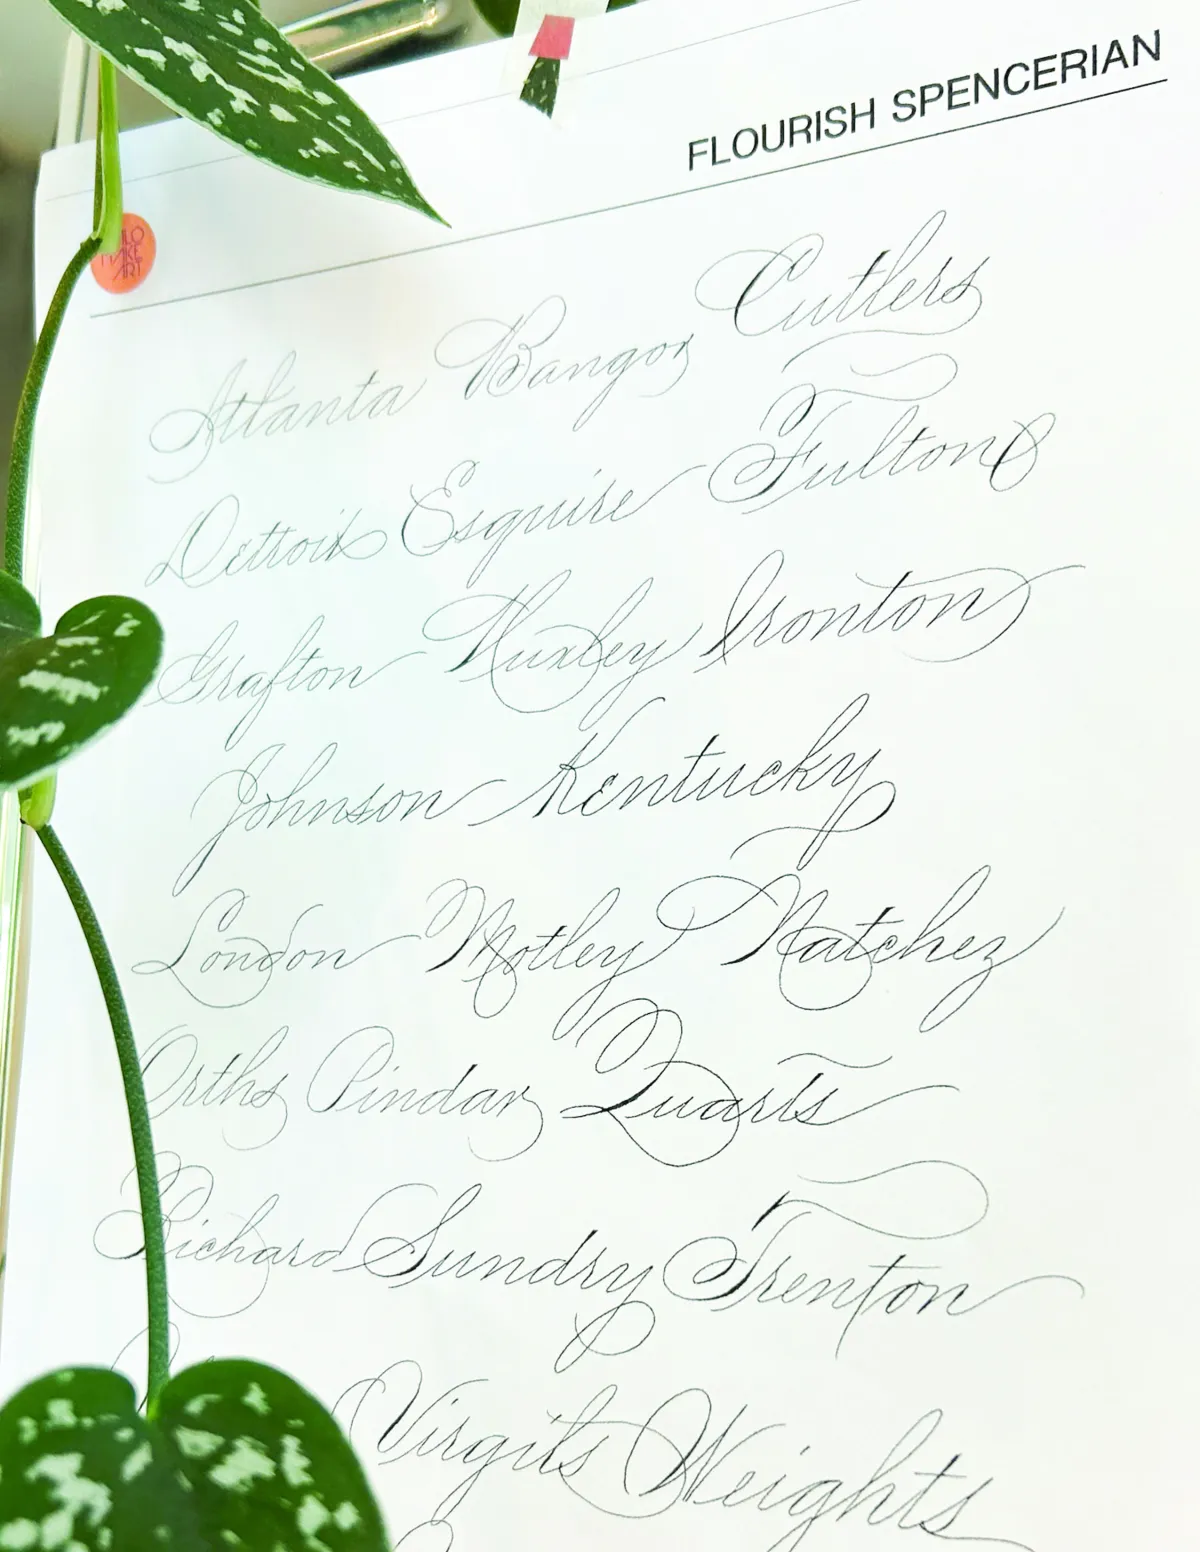 FLOURISH SPENCERIAN
MAKE
ART
Atlanta Bangor Cutlers
Detroit Esquire Fulton
Grafton Huxley Ironton
Johnson Kentucky
London Motley Natchez
Orths Pindar Quarts
Richard Sundry Trenton
Virgils Weights